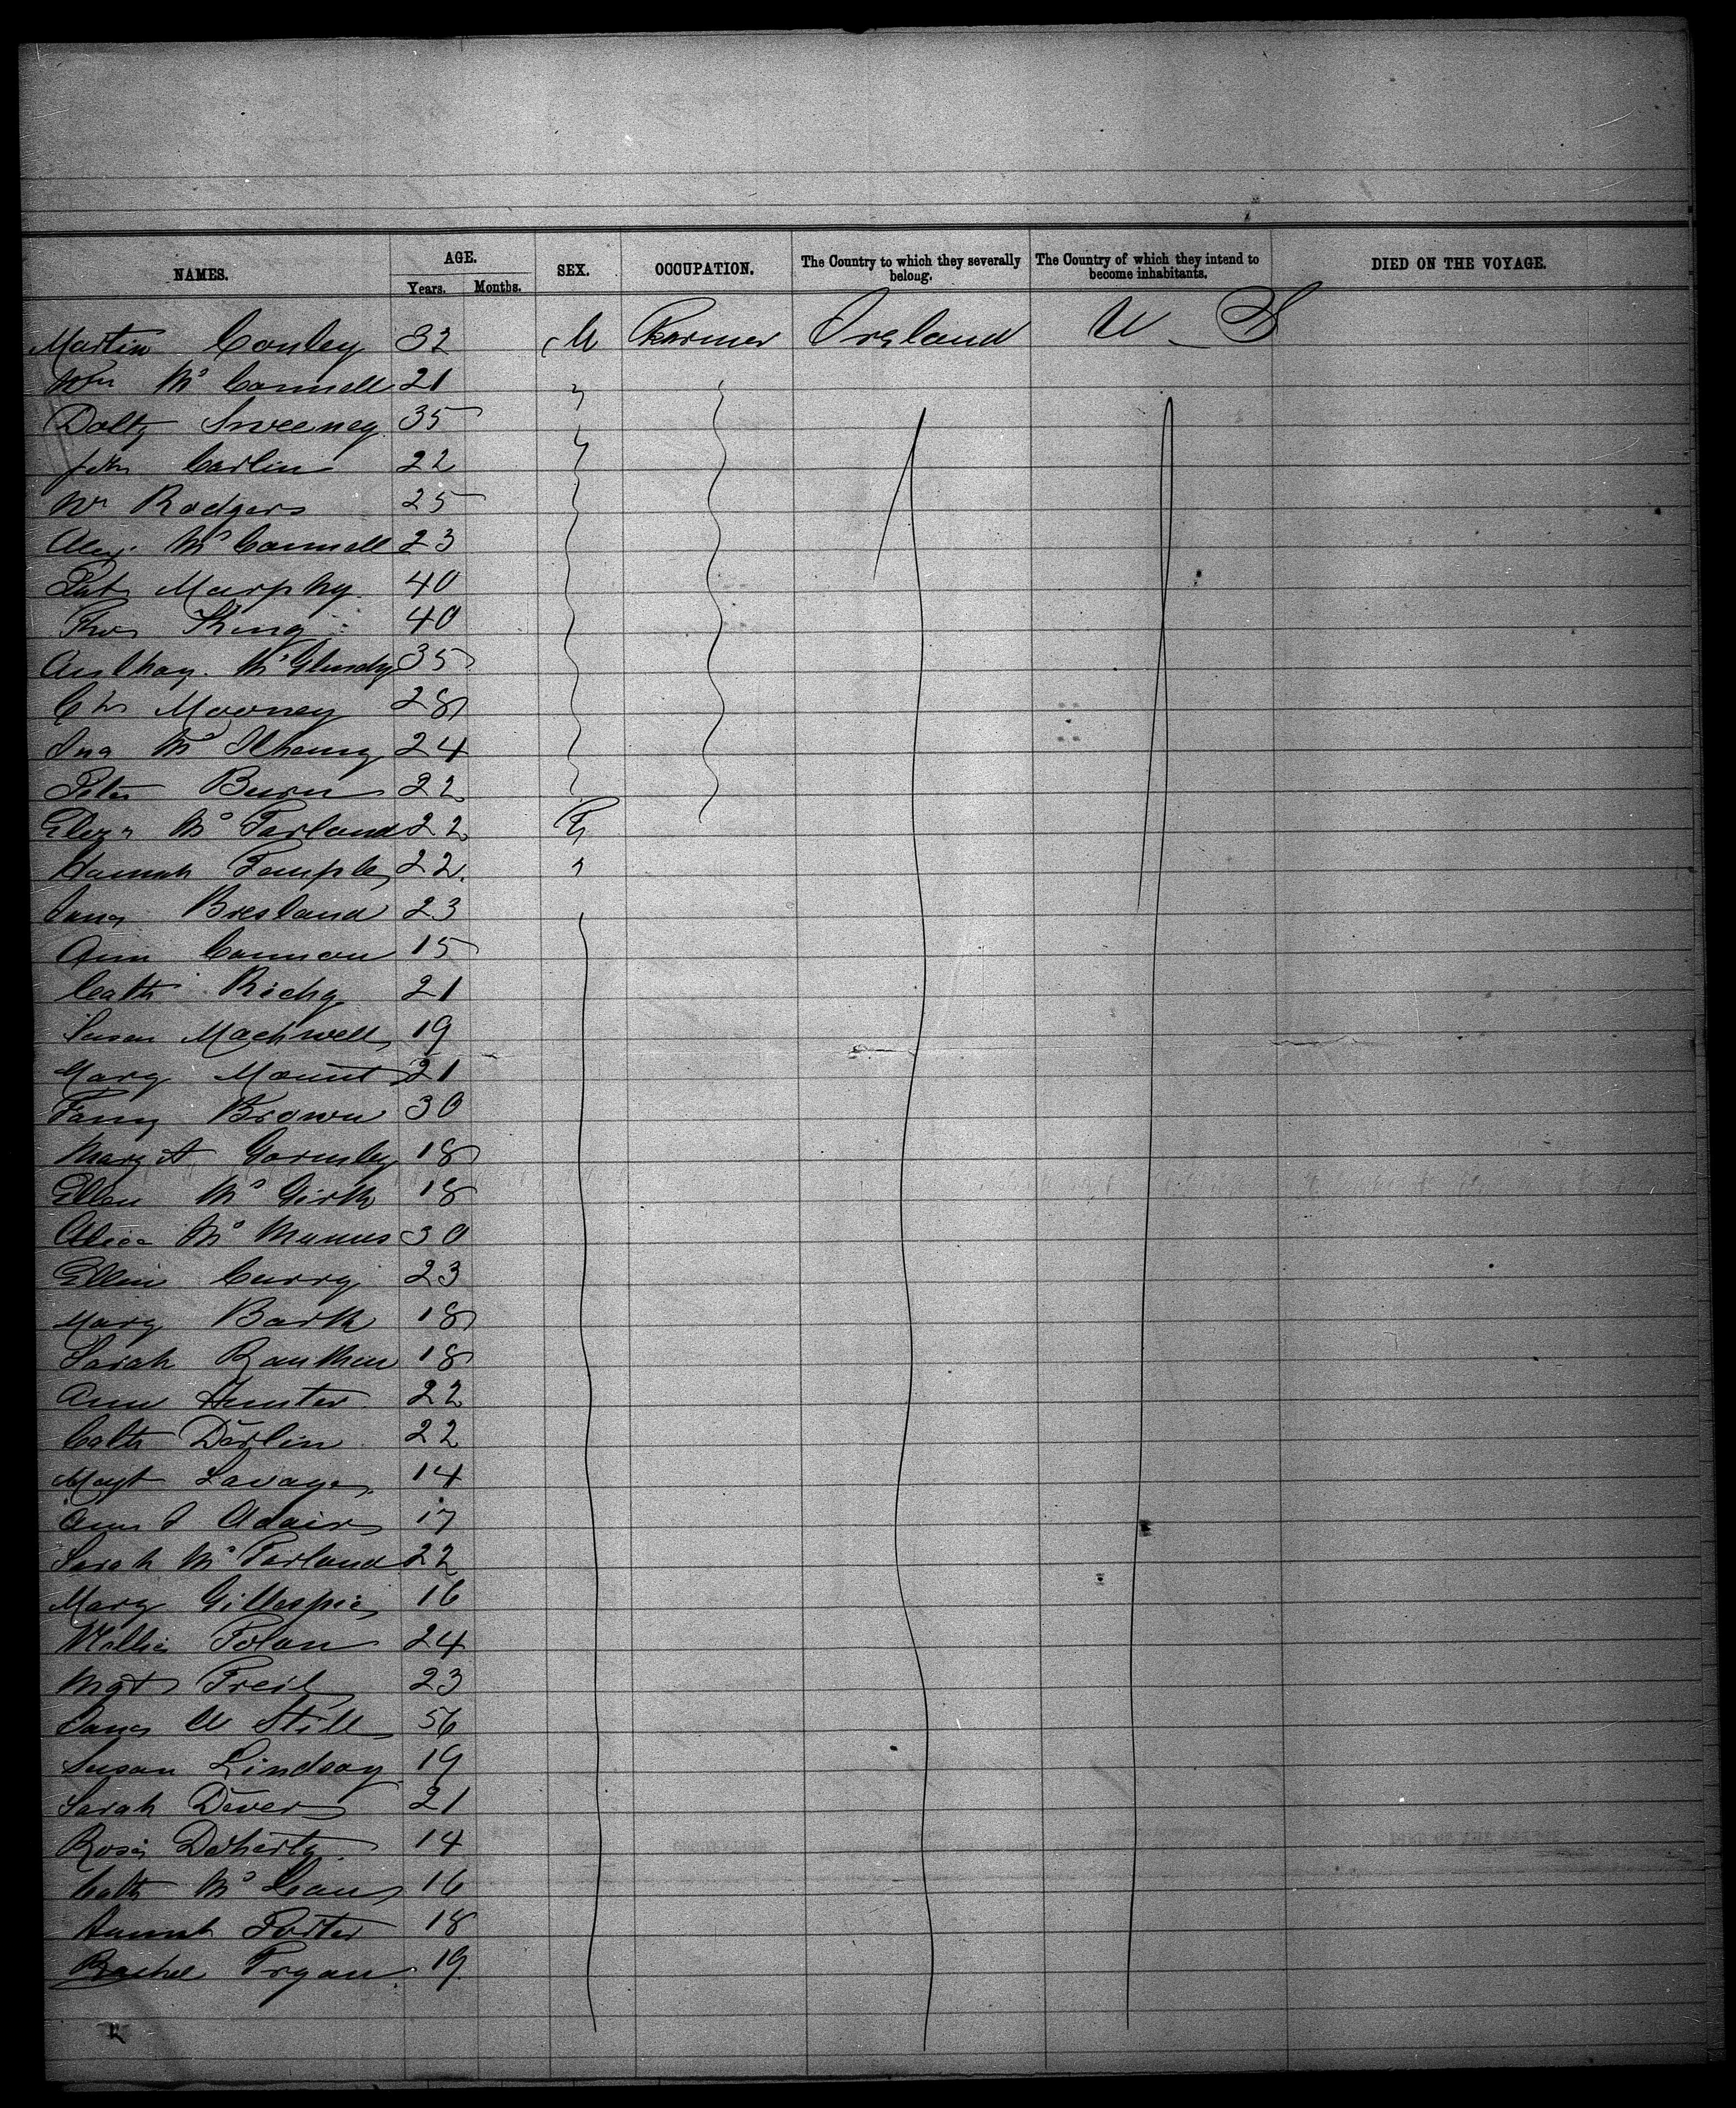 NAMES. AGE. SEX. OCCUPATION. The Country to which they severally belong. The Country of which they intend to become inhabitants. DIED ON THE VOYAGE.
Years. Months.
Martin Conley 32 M Farmer Ireland U S
Wm Mc Connell 21 "
Dolty Sweeney 35
John Carlin 22
Wm Rodgers 25
Alex. Mc Connell 23
Pat Murphy 40
Thos King 40
35
Chs Mooney 28
24
Peter Burn 22
Eliza Mc Farland 22 F
Hannah Temple 22 "
Jane Bresland 23
Ann Cannon 15
Cath Richy 21
Susan Mackwell 19
Mary Mount 21
Fanny Brown 30
Mary A Gormley 18
Ellen Mc Girth 18
Alice Mc Manus 30
Ellen Curry 23
Mary Barth 18
Sarah Rankin 18
Ann Hunter 22
Cath Darlin 22
Magt Lavage 14
Ann J Adair 17
Sarah Mc Farland 22
Mary Gillespie 16
Tolan 24
Mgt Freil 23
Jane Still 56
Susan Lindsay 19
Sarah Dever 21
Rose Doherty 14
Cath Mc 16
Hannah Porter 18
Rachel 19